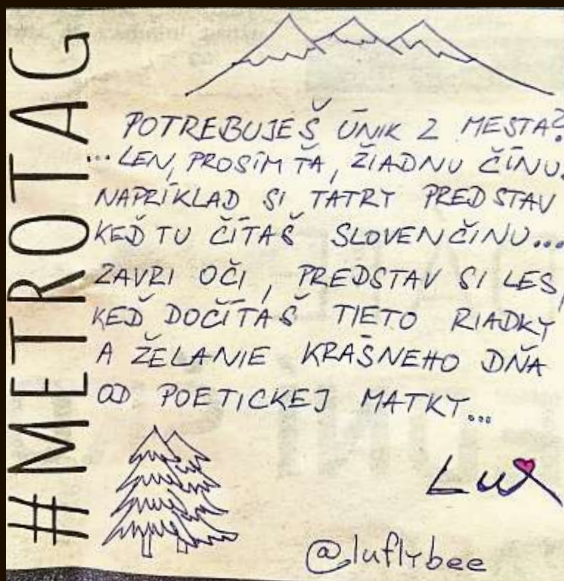 #METROTAG
POTREBUJEŠ ÚNIK Z MESTA?
...LEN, PROSÍM ŤA, ŽIADNU ČÍNU.
NAPRÍKLAD SI TATRY PREDSTAV
KEĎ TU ČÍTAŠ SLOVENČINU...
ZAVRI OČI, PREDSTAV SI LES,
KEĎ DOČÍTAŠ TIETO RIADKY
A ŽELANIE KRÁSNEHO DŇA
OD POETICKEJ MATKY...
Lui
@luflybee